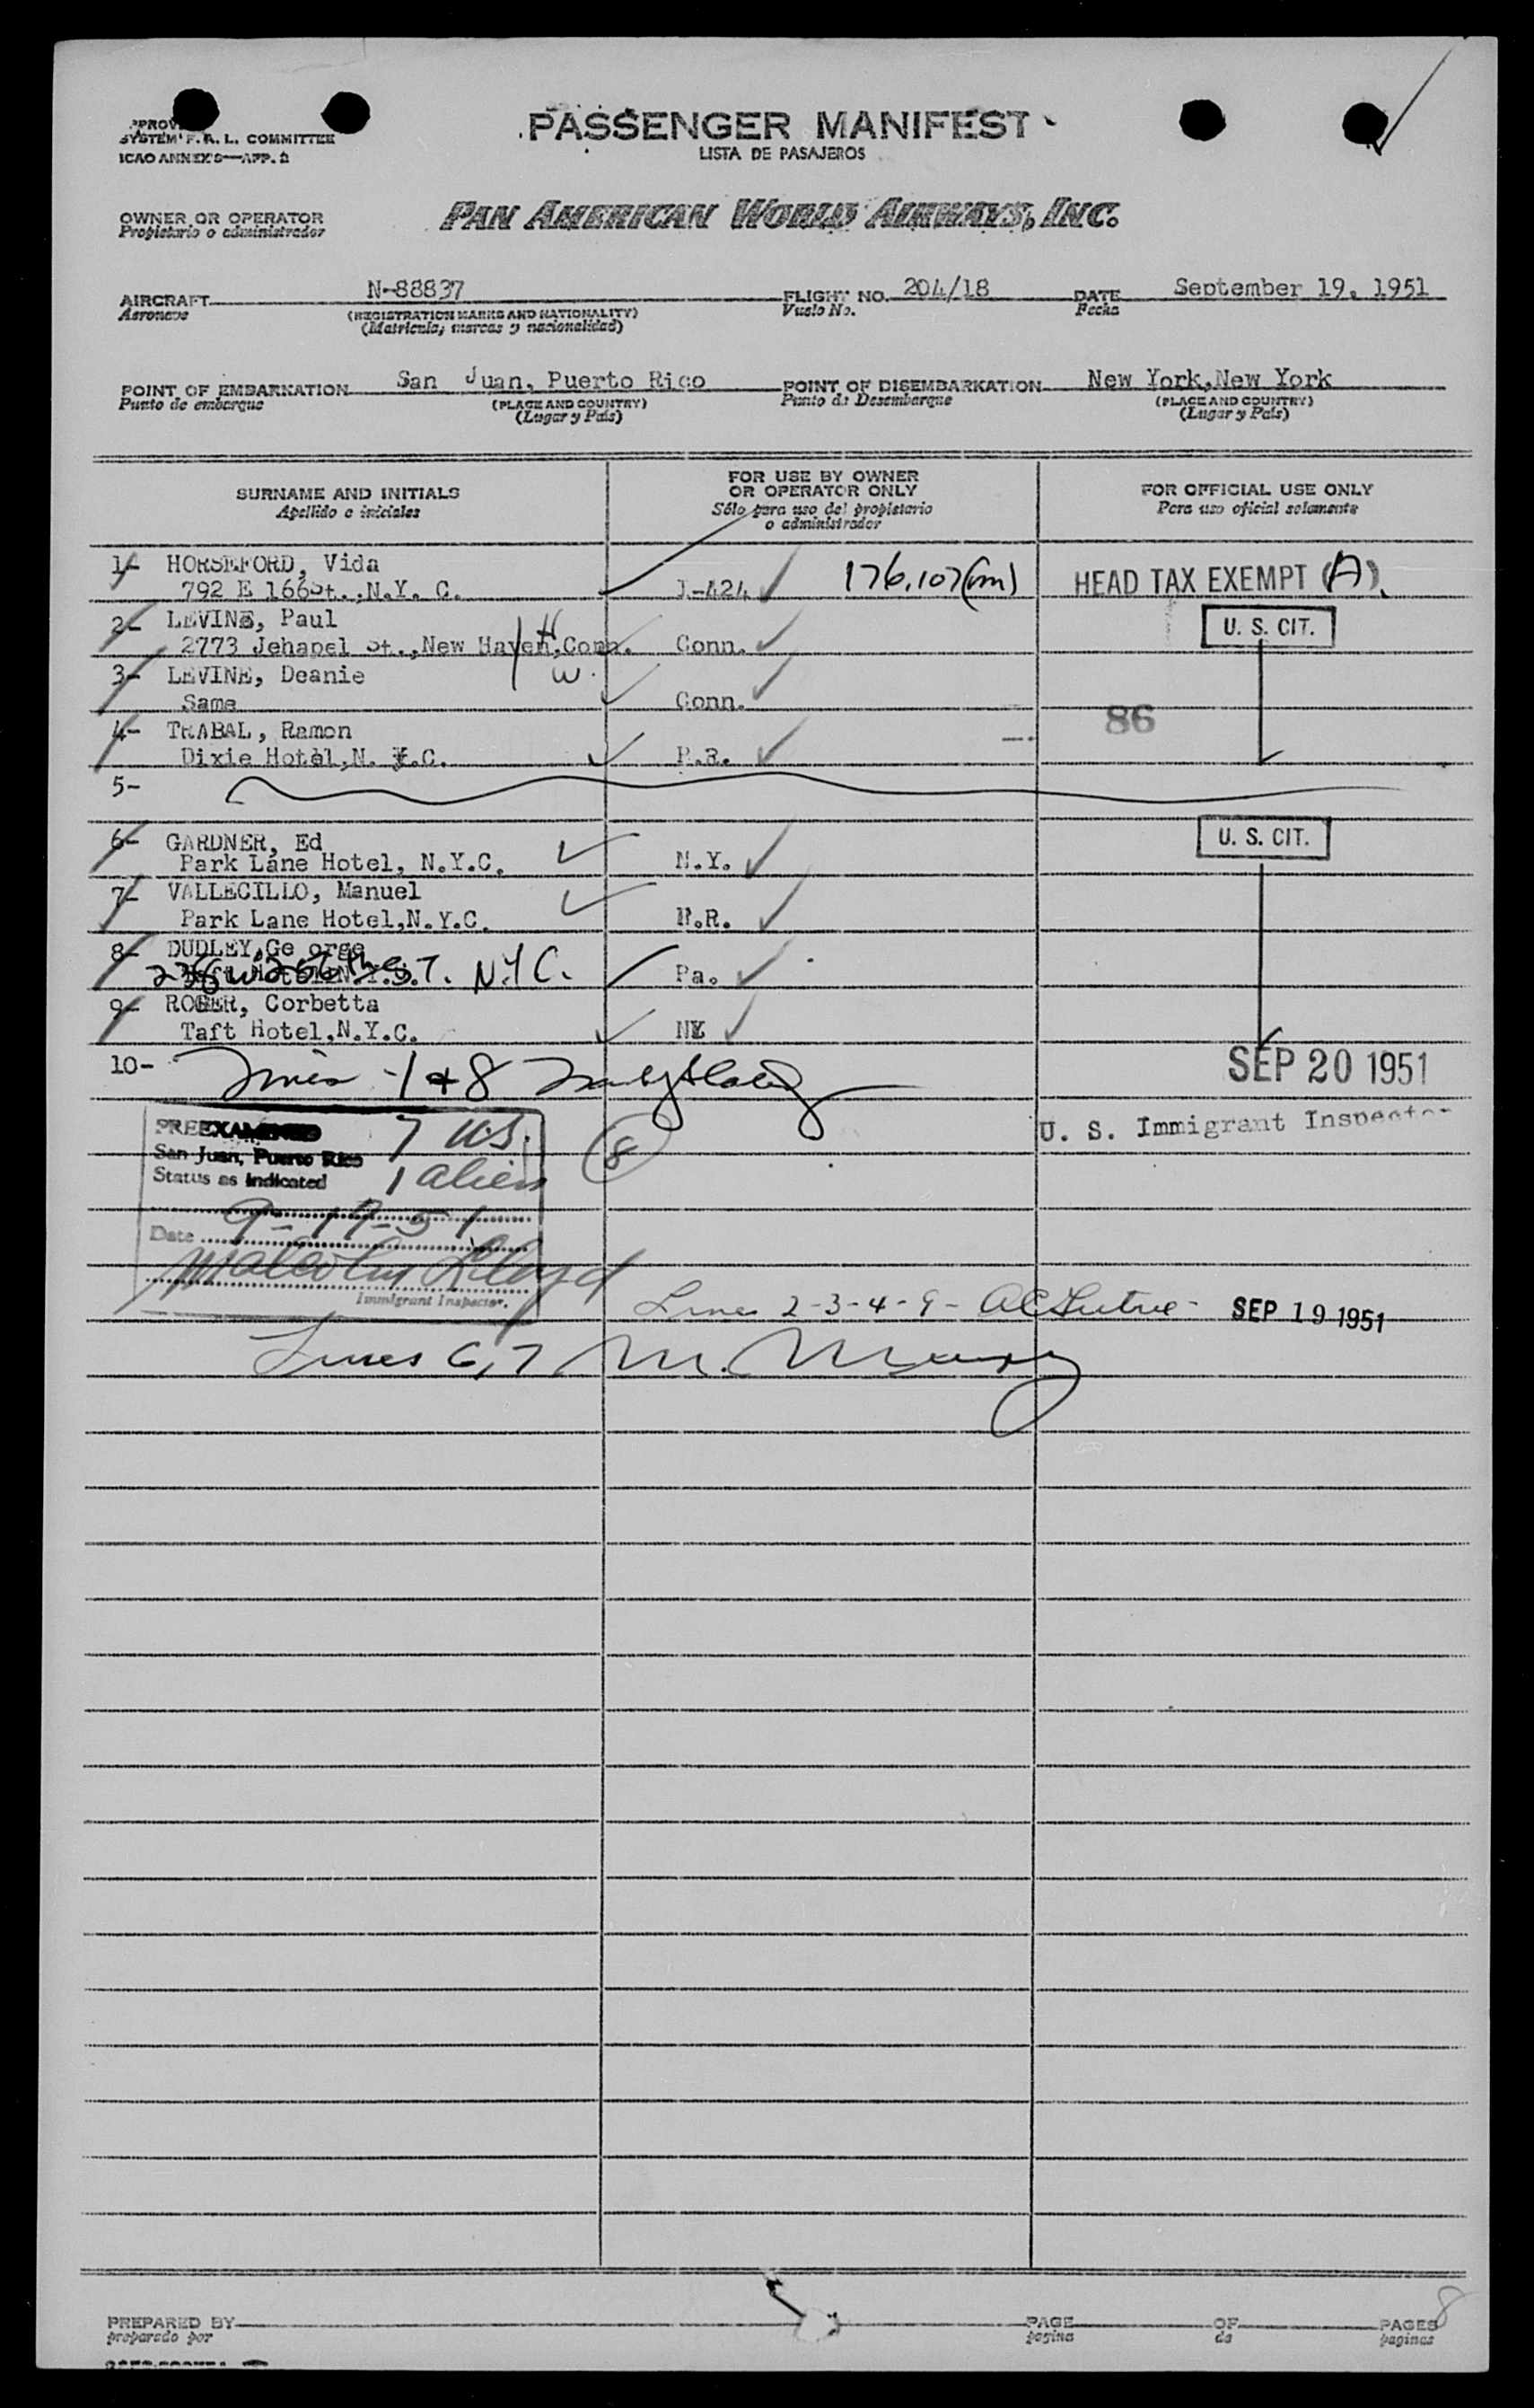 PASSENGER MANIFEST
LISTA DE PASAJEROS
SYSTEM F.A.L. COMMITTEE
ICAO ANNEX 9—APP. 2
OWNER OR OPERATOR
Propietario o administrador
PAN AMERICAN WORLD AIRWAYS, INC.
AIRCRAFT N-88837 FLIGHT NO. 204/18 DATE September 19, 1951
Aeronave (REGISTRATION MARKS AND NATIONALITY) Vuelo No. Fecha
(Matricula, marcas y nacionalidad)
POINT OF EMBARKATION San Juan, Puerto Rico POINT OF DISEMBARKATION New York, New York
Punto de embarque (PLACE AND COUNTRY) Punto de Desembarque (PLACE AND COUNTRY)
(Lugar y País) (Lugar y País)
SURNAME AND INITIALS FOR USE BY OWNER OR OPERATOR ONLY FOR OFFICIAL USE ONLY
Apellido e iniciales Sólo para uso del propietario o administrador Para uso oficial solamente
1- HORSEFORD, Vida
792 E 166St., N.Y. C. I-424 176,107(m) HEAD TAX EXEMPT (A)
2- LEVINE, Paul H U. S. CIT.
2773 Jehapel St., New Haven, Conn. Conn.
3- LEVINE, Deanie W.
Same Conn.
4- TRABAL, Ramon 86
Dixie Hotel, N. Y.C. P.R.
5-
6- GARDNER, Ed U. S. CIT.
Park Lane Hotel, N.Y.C. N.Y.
7- VALLECILLO, Manuel
Park Lane Hotel, N.Y.C. P.R.
8- DUDLEY, Ge orge
ST. N.Y C. Pa.
9- ROGER, Corbetta
Taft Hotel, N.Y.C. NY
10- Lines 1 + 8 SEP 20 1951
U. S. Immigrant Inspector
PREEXAMINED 7 US.
San Juan, Puerto Rico 8
Status as indicated 1 alien
Date 9-19-51
Malcolm Lloyd
Immigrant Inspector.
Lines 2-3-4-9- SEP 19 1951
Lines 6,7 M.
PREPARED BY PAGE OF PAGES 8
preparado por pagina de paginas